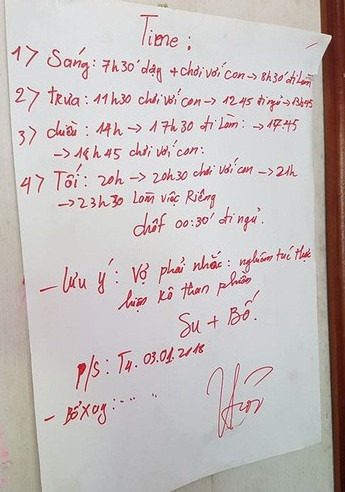 Time:
1> Sáng: 7h30 dậy + chơi với con → 8h30 đi làm
2> Trưa: 11h30 chơi với con → 12h45 đi ngủ → 13h45
3> chiều: 14h → 17h30 đi Làm: → 17.45
→ 18h45 chơi với con:
4> Tối: 20h → 20h30 chơi với con → 21h
→ 23h30 Làm việc Riêng
chốt 00:30' đi ngủ.
- Lưu ý: Vợ phải nhắc: nghiêm túc thực
hiện kô than phiền
Su + Bố.
P/S: T4. 03.01.2018
- Bố Xoy: